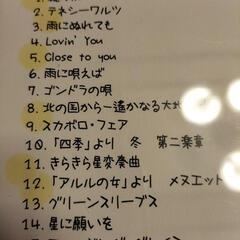 2. テネシーワルツ
3. 雨にぬれても
4. Lovin' You
5. Close to you
6. 雨に唄えば
7. ゴンドラの唄
8. 北の国から〜遥かなる大地
9. スカボロ・フェア
10. 「四季」より 冬 第二楽章
11. きらきら星変奏曲
12. 「アルルの女」より メヌエット
13. グリーンスリーブス
14. 星に願いを